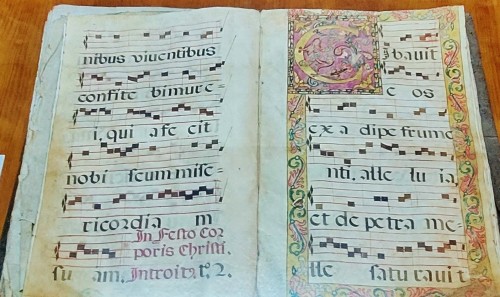 nibus viventibus
confite bimur e-
i. qui a fe cit
nobi scum mise-
ricordia m
In Festo Cor
poris Christi.
su am. Introit. t. 2.
C ibavit
e os
ex a dipe frume
nti. alle lu ia
et de petra me-
lle satu ravit